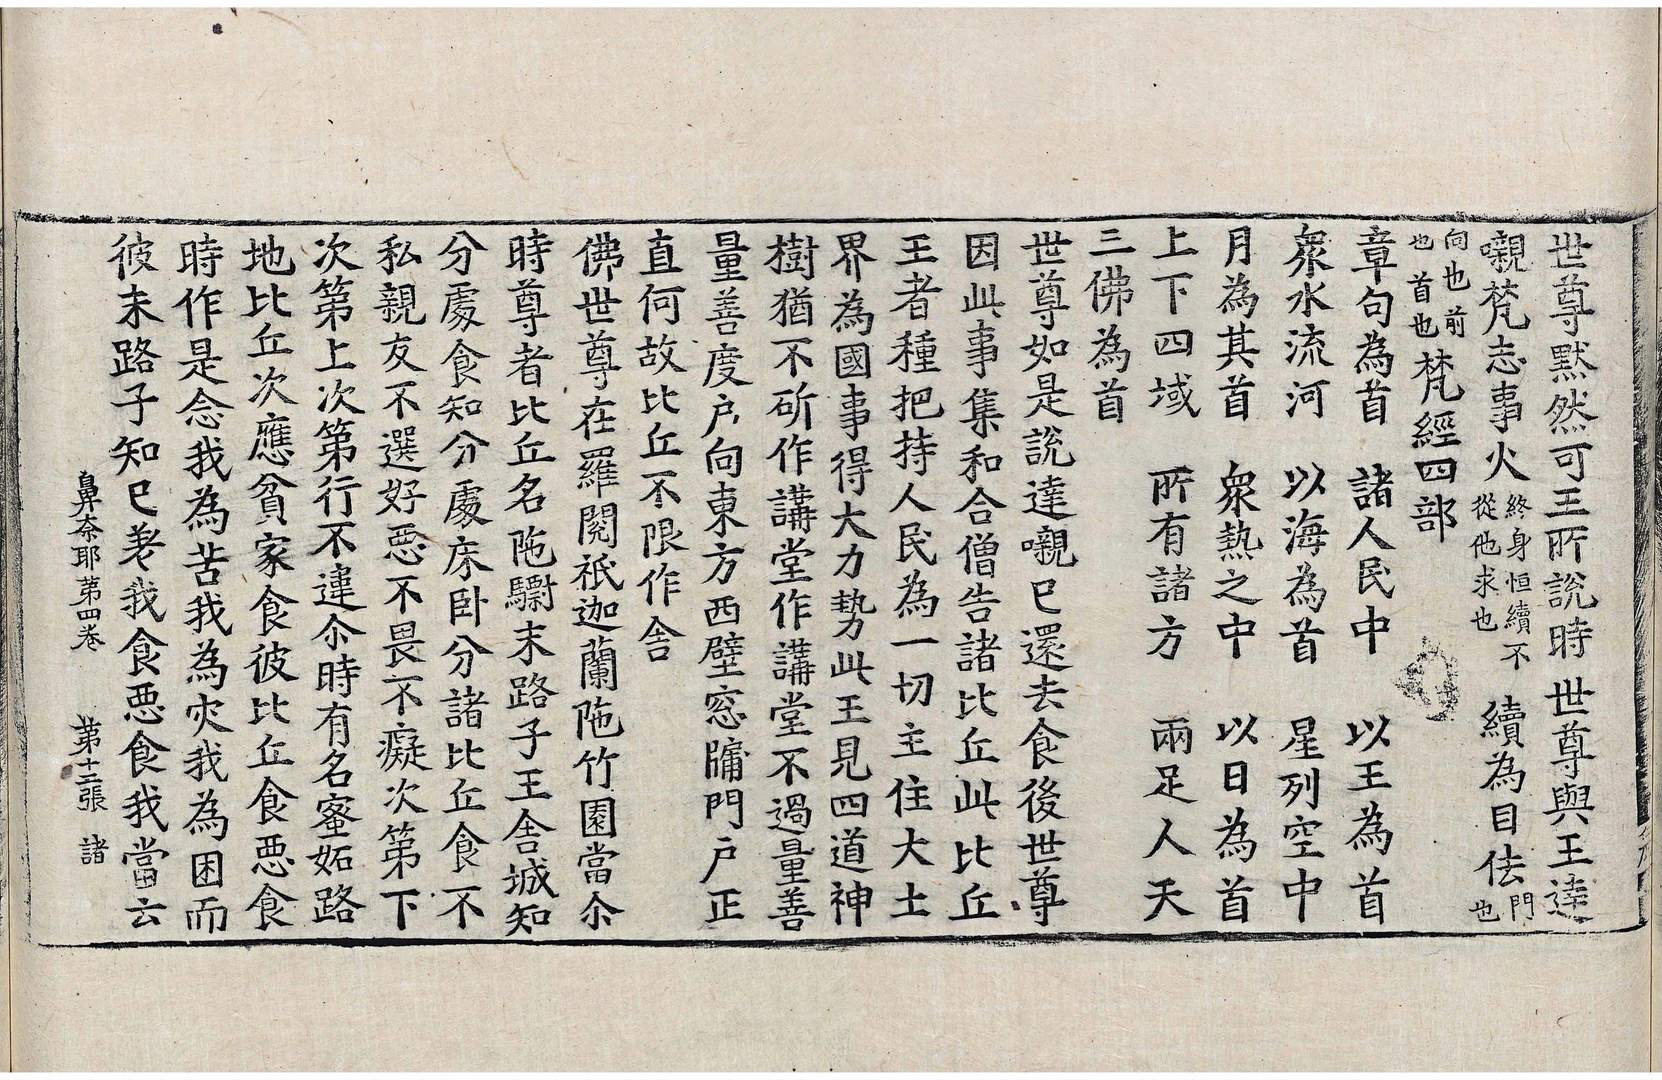 世尊默然可王所說時世尊與王達
嚫梵志事火終身恒續不從他求也續為目佉門也
向也前也首也梵經四部
章句為首　諸人民中　以王為首
衆水流河　以海為首　星列空中
月為其首　衆熱之中　以日為首
上下四域　所有諸方　兩足人天
三佛為首
世尊如是說達嚫已還去食後世尊
因此事集和合僧告諸比丘此比丘
王者種把持人民為一切主住大土
界為國事得大力勢此王見四道神
樹猶不斫作講堂作講堂不過量善
量善度戶向東方西壁窓牗門戶正
直何故比丘不限作舍
佛世尊在羅閱祇迦蘭陁竹園當尒
時尊者比丘名陁驪末路子王舍城知
分處食知分處床卧分諸比丘食不
私親友不選好惡不畏不癡次第下
次第上次第行不違尒時有名蜜妬路
地比丘次應貧家食彼比丘食惡食
時作是念我為苦我為灾我為困而
彼末路子知已差我食惡食我當云
鼻奈耶第四卷　第十二張　諸